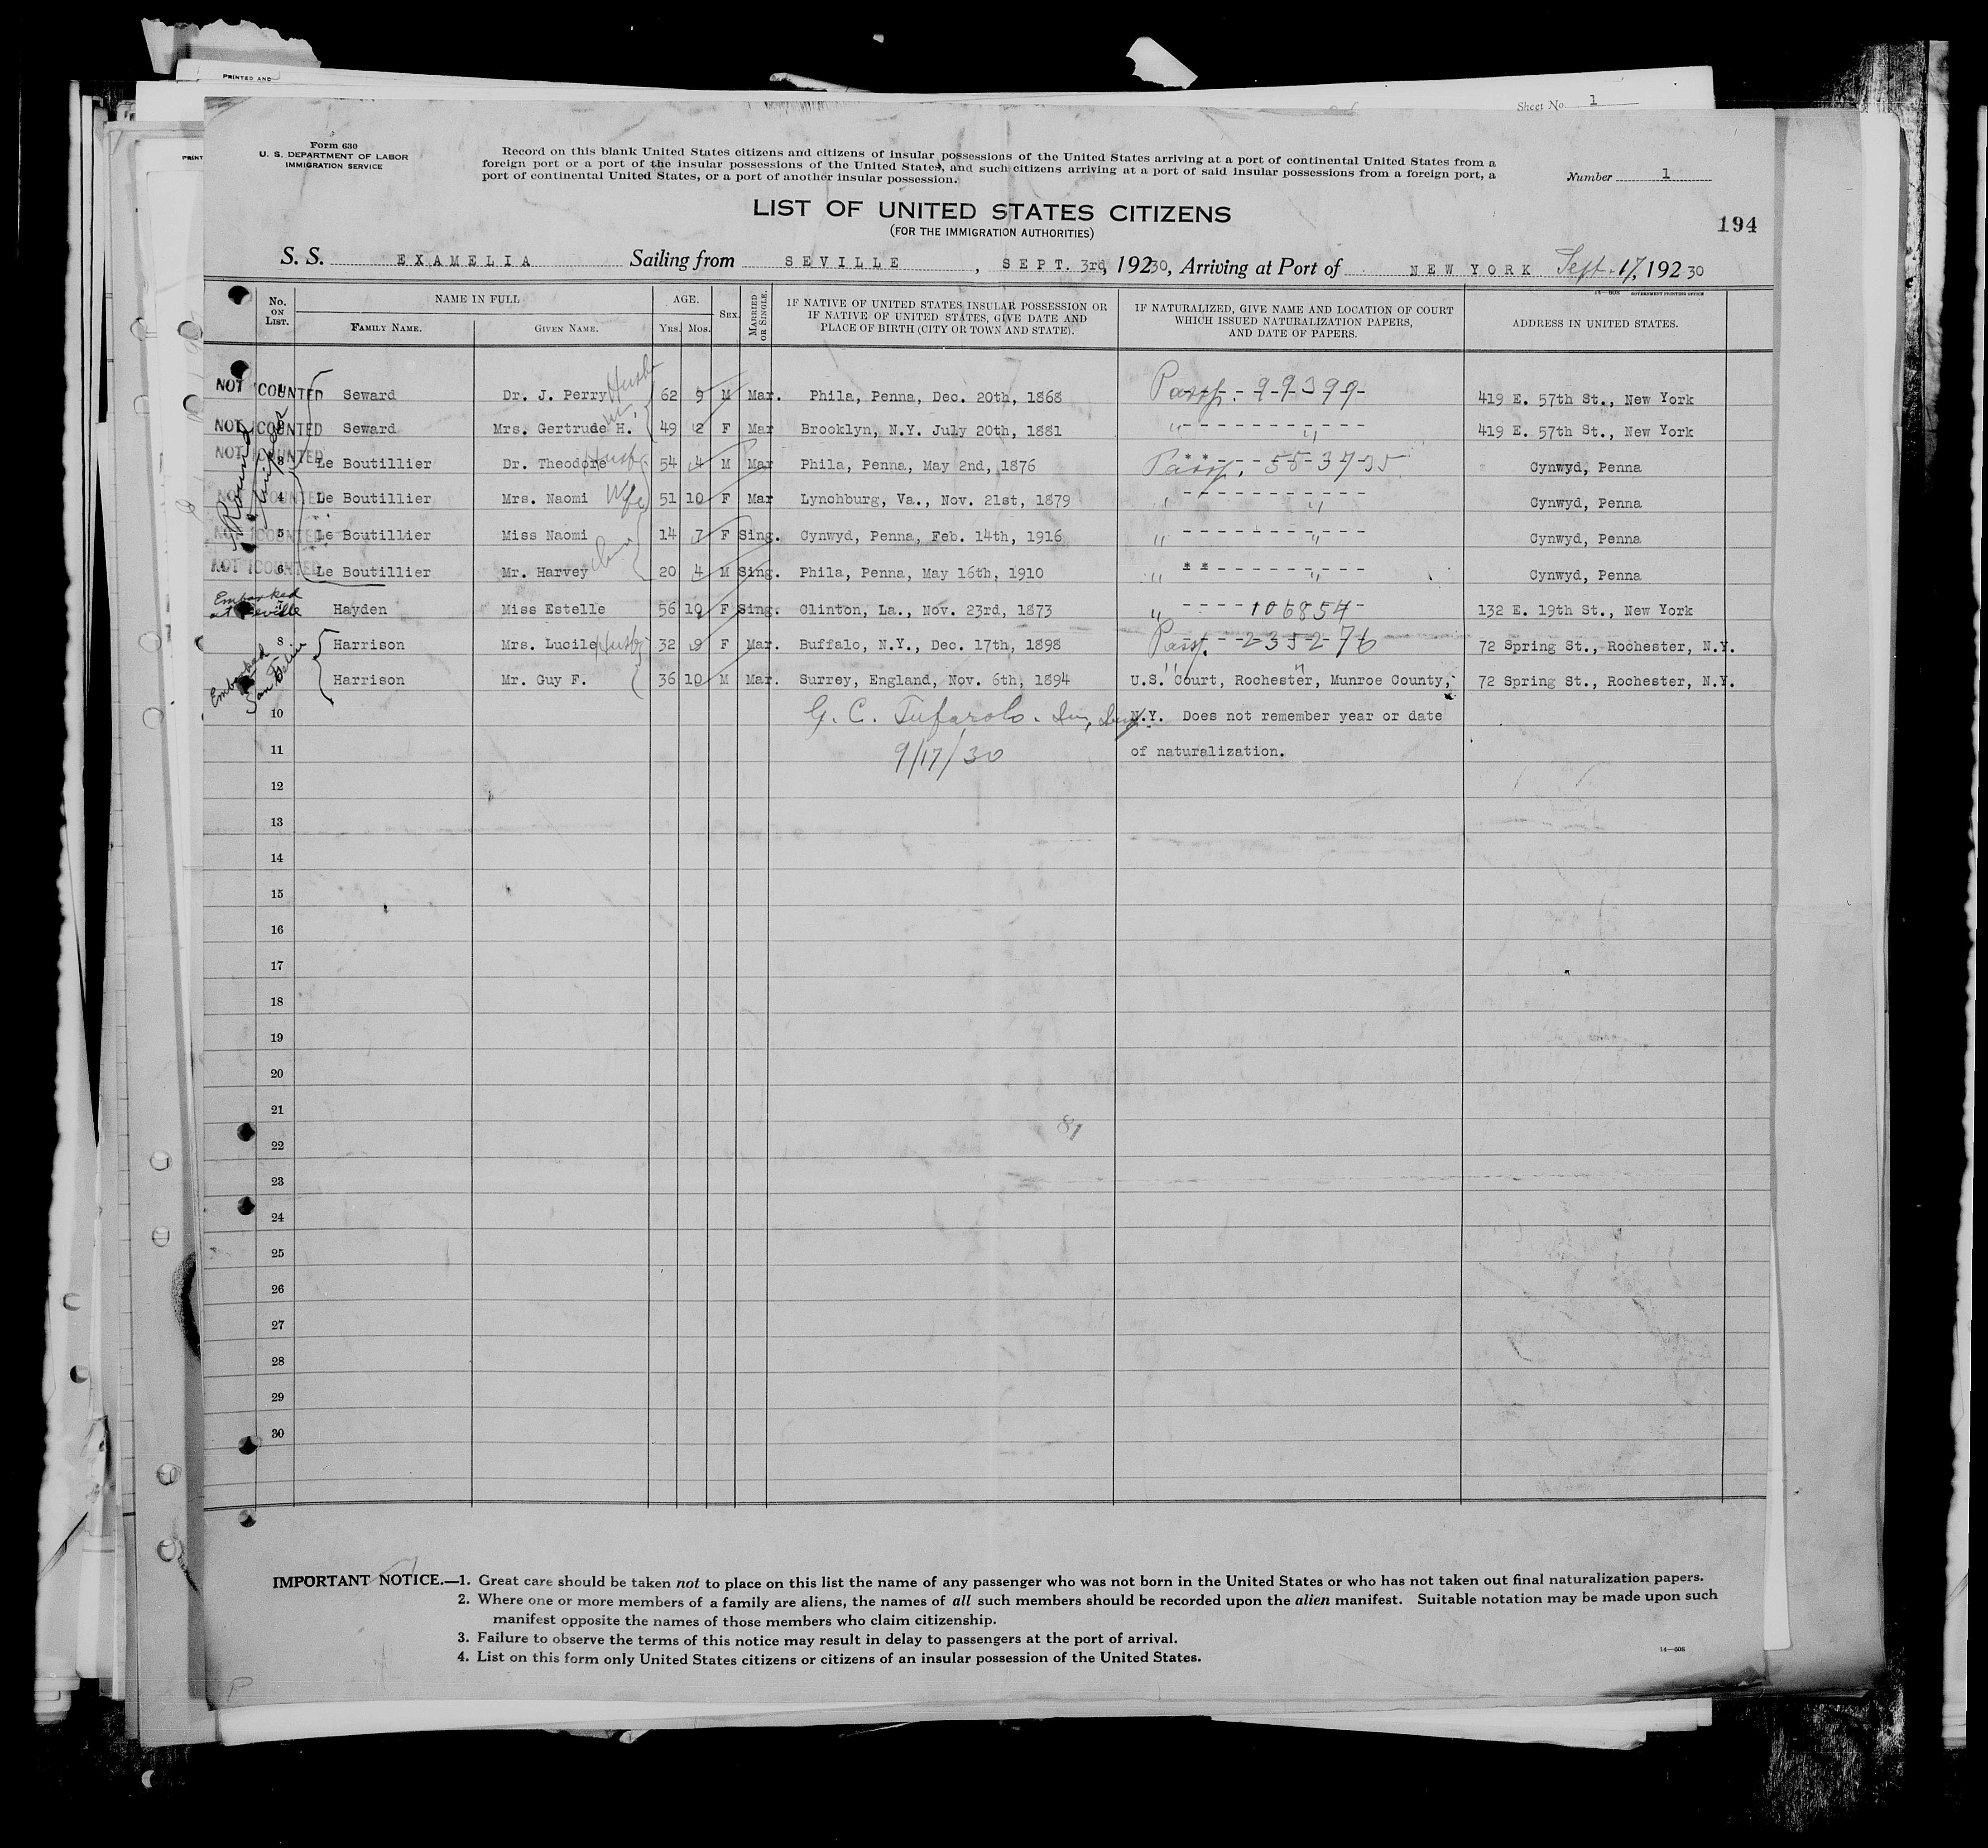 PRINTED AND
Sheet No. 1
PRINT
Form 630
U. S. DEPARTMENT OF LABOR
IMMIGRATION SERVICE
Record on this blank United States citizens and citizens of insular possessions of the United States arriving at a port of continental United States from a
foreign port or a port of the insular possessions of the United States, and such citizens arriving at a port of said insular possessions from a foreign port, a
port of continental United States, or a port of another insular possession.
Number 1
LIST OF UNITED STATES CITIZENS
(FOR THE IMMIGRATION AUTHORITIES)
194
S. S. EXAMELIA Sailing from SEVILLE, SEPT. 3rd, 19230, Arriving at Port of NEW YORK Sept. 17, 192 30
14—608 GOVERNMENT PRINTING OFFICE
No. ON LIST. NAME IN FULL AGE. SEX. MARRIED OR SINGLE. IF NATIVE OF UNITED STATES INSULAR POSSESSION OR IF NATIVE OF UNITED STATES, GIVE DATE AND PLACE OF BIRTH (CITY OR TOWN AND STATE). IF NATURALIZED, GIVE NAME AND LOCATION OF COURT WHICH ISSUED NATURALIZATION PAPERS, AND DATE OF PAPERS. ADDRESS IN UNITED STATES.
FAMILY NAME. GIVEN NAME. YRS. MOS.
NOT COUNTED Seward Dr. J. Perry Husb 62 9 M Mar. Phila, Penna, Dec. 20th, 1868 Passp. 99399 419 E. 57th St., New York
NOT COUNTED Seward Mrs. Gertrude H. 49 2 F Mar Brooklyn, N.Y. July 20th, 1881 " " 419 E. 57th St., New York
NOT COUNTED 3 Le Boutillier Dr. Theodore Husb 54 4 M Mar Phila, Penna, May 2nd, 1876 Passp. Cynwyd, Penna
NOT COUNTED 4 Le Boutillier Mrs. Naomi Wife 51 10 F Mar Lynchburg, Va., Nov. 21st, 1879 " " Cynwyd, Penna
NOT COUNTED 5 Le Boutillier Miss Naomi 14 7 F Sing. Cynwyd, Penna, Feb. 14th, 1916 " " Cynwyd, Penna
NOT COUNTED 6 Le Boutillier Mr. Harvey 20 4 M Sing. Phila, Penna, May 16th, 1910 " " Cynwyd, Penna
Embarked at Seville Hayden Miss Estelle 56 10 F Sing. Clinton, La., Nov. 23rd, 1873 " 106854 132 E. 19th St., New York
8 Harrison Mrs. Lucile Husb 32 9 F Mar. Buffalo, N.Y., Dec. 17th, 1898 Passp. 235276 72 Spring St., Rochester, N.Y.
Embarked Harrison Mr. Guy F. 36 10 M Mar. Surrey, England, Nov. 6th, 1894 U.S. Court, Rochester, Munroe County, 72 Spring St., Rochester, N.Y.
10 G. C. N.Y. Does not remember year or date
11 9/17/30 of naturalization.
12
13
14
15
16
17
18
19
20
21
81
22
23
24
25
26
27
28
29
30
IMPORTANT NOTICE.—1. Great care should be taken not to place on this list the name of any passenger who was not born in the United States or who has not taken out final naturalization papers.
2. Where one or more members of a family are aliens, the names of all such members should be recorded upon the alien manifest. Suitable notation may be made upon such
manifest opposite the names of those members who claim citizenship.
3. Failure to observe the terms of this notice may result in delay to passengers at the port of arrival.
4. List on this form only United States citizens or citizens of an insular possession of the United States.
14—608
P